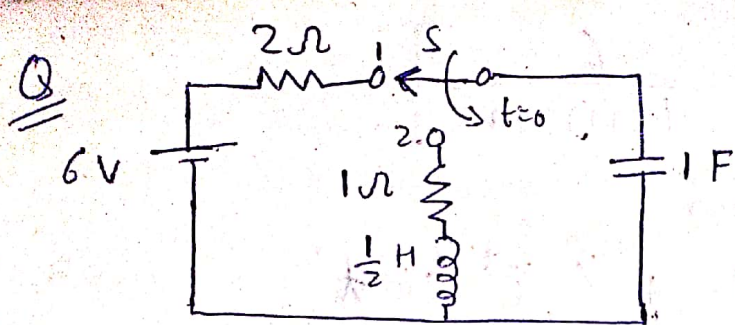 Q
2Ω
1
S
t=0
2.
6V
1Ω
1/2 H
1 F